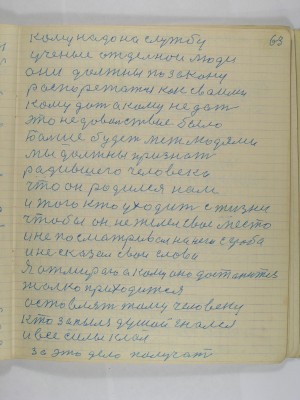 63
кому надо на службу
ученые отделной люди
они должны по закону
распоретатся как своими
кому дат акому не дат
это недоволствие было
болше будет меж людями
мы должны признат
радившего человека
что он родился нам
и того кто уходит с жизни
чтобы он не жлел свое место
и не посматривал на чего с узба
и не сказал свои слова
Я отмираю а кому оно достанится
только приходится
оставлят тому человеку
кто запыль душой гнался
и все силы клал
за это дело получат